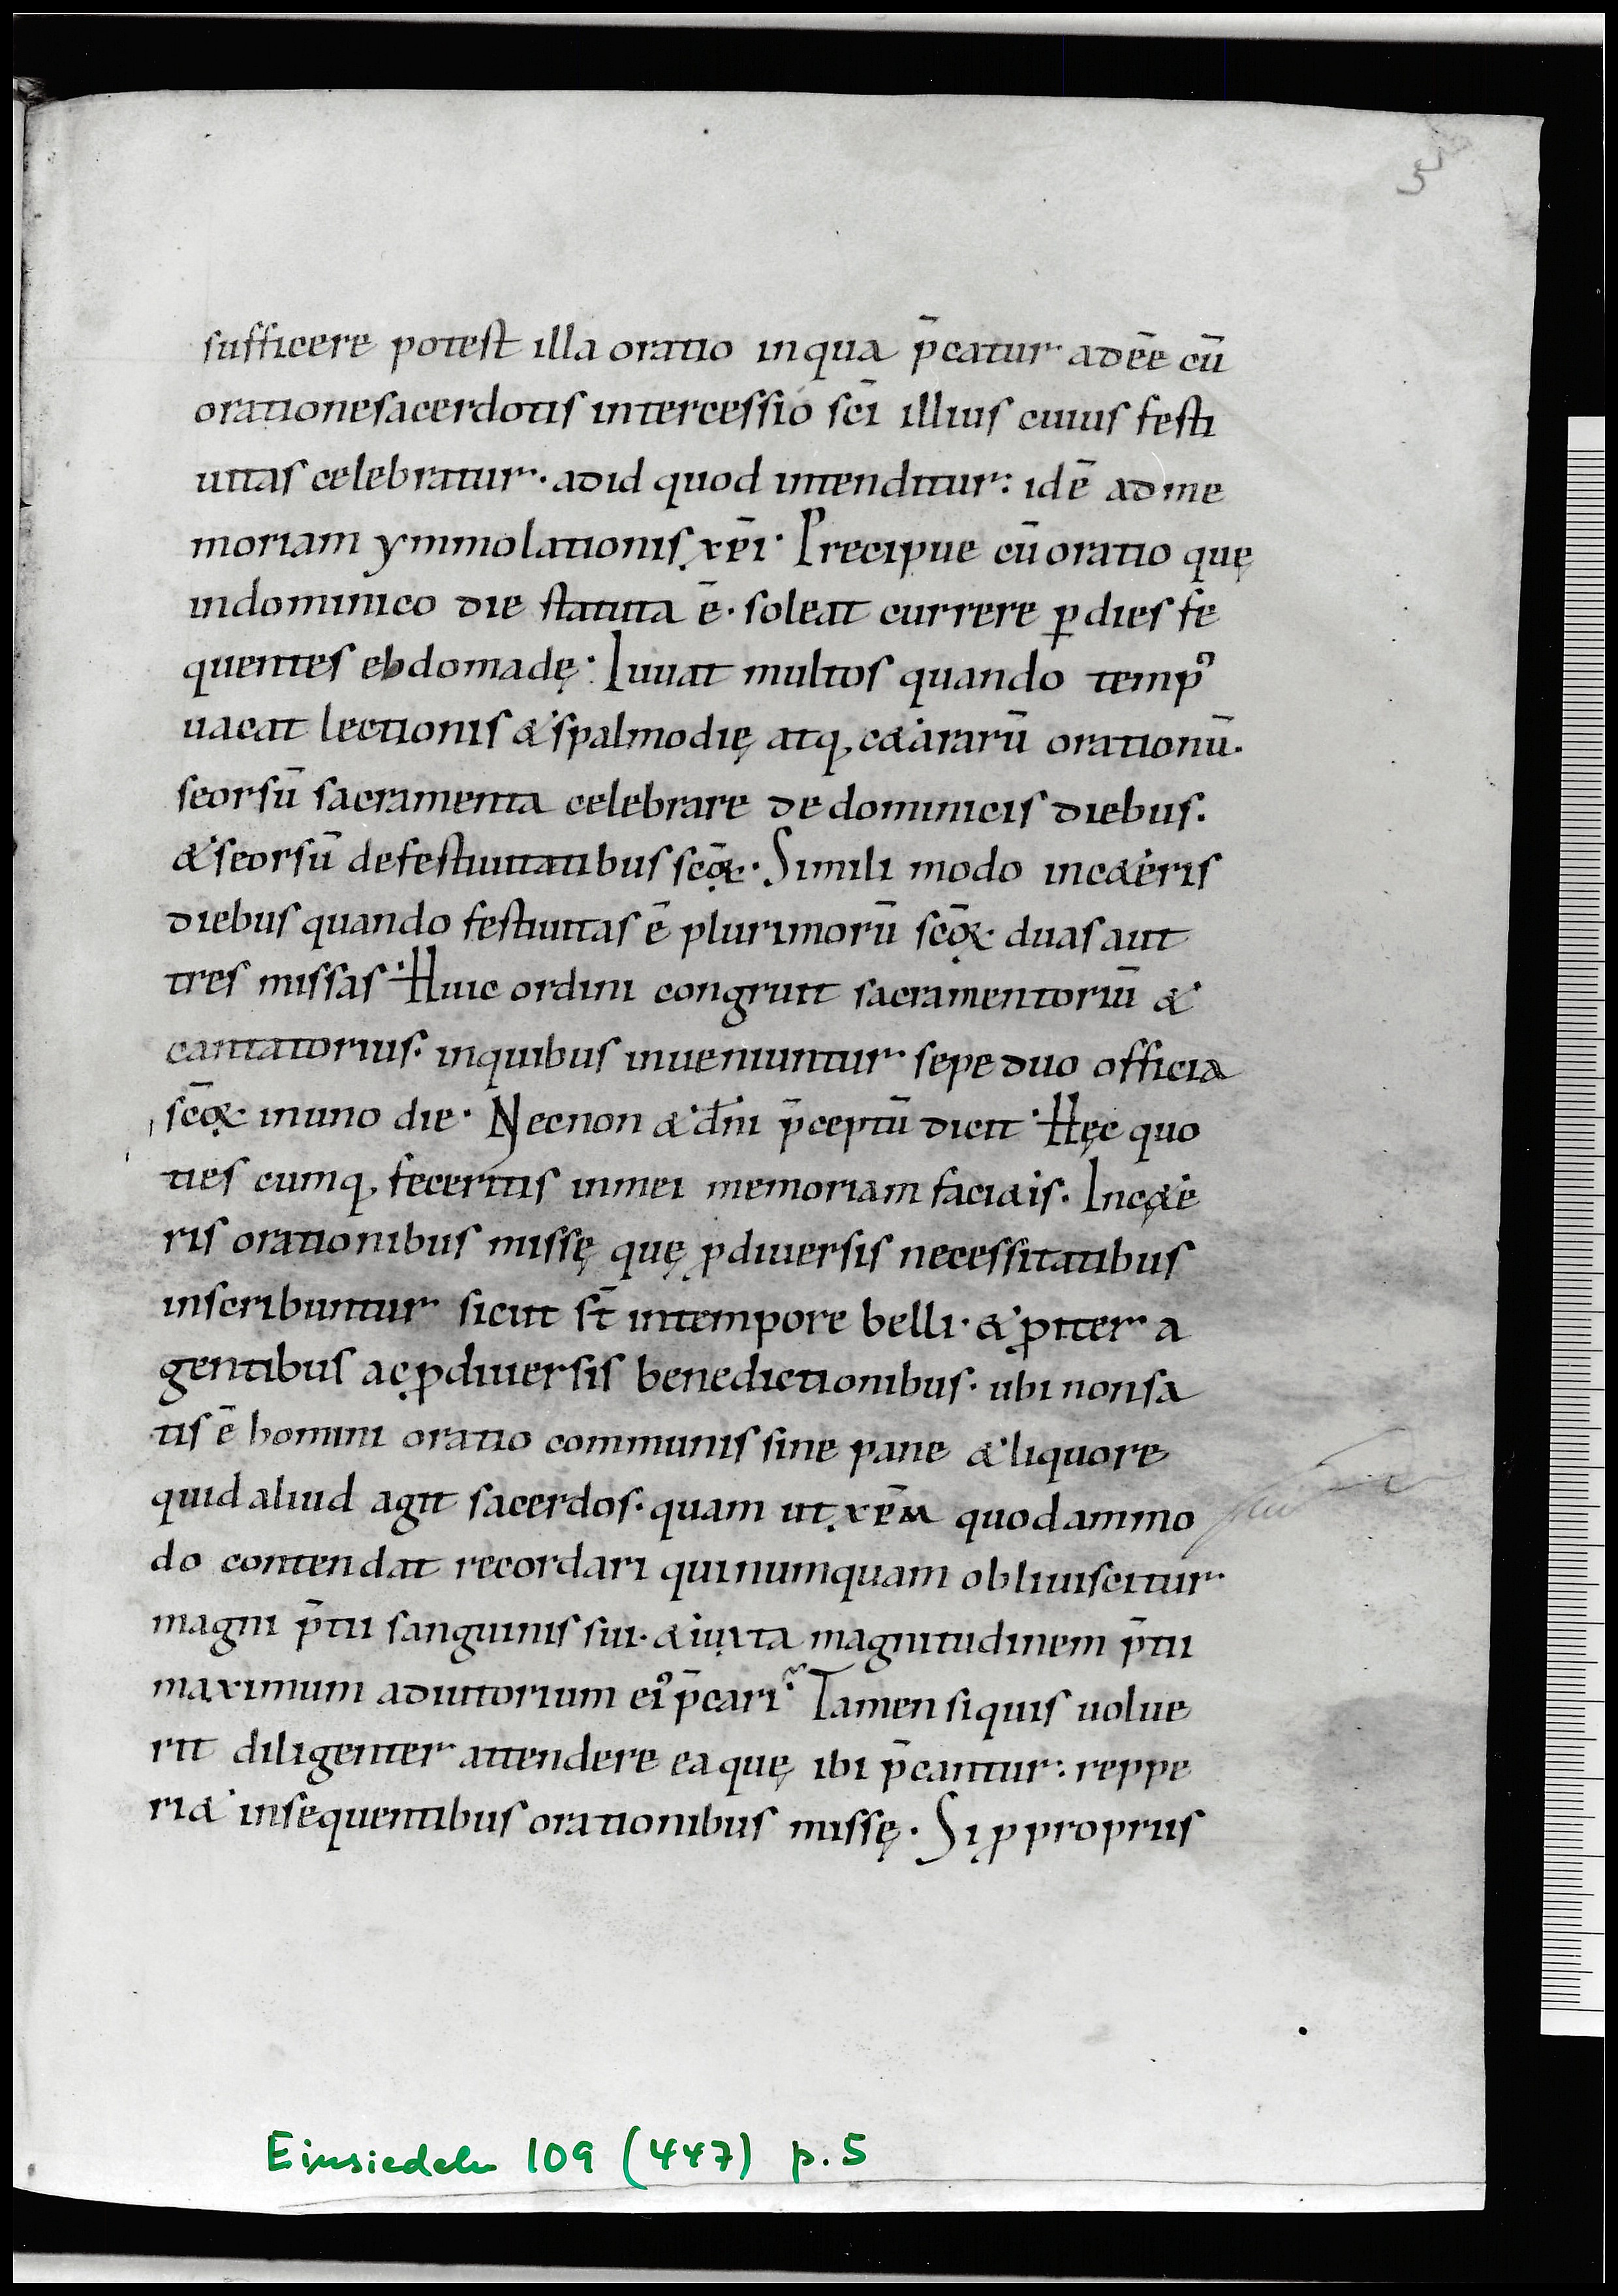 5
sufficere potest illa oratio inqua p̄catur adēē cū
orationesacerdotis intercessio sc̄i illius cuius festi
uitas celebratur· adid quod intenditur: idē adme
moriam ymmolationis xp̄i· Precipue cū oratio quę
indominico die statuta ē· soleat currere ꝑdies se
quentes ebdomadę· Iuuat multos quando temp᾿
uacat lectionis & spalmodię atq, c&ararū orationū·
seorsū sacramenta celebrare dedominicis diebus·
& seorsū defestiuitatibus sc̄oꝝ· Simili modo inc&eris
diebus quando festiuitas ē plurimorū sc̄oꝝ duas aut
tres missas· Huic ordini congruit sacramentoriū &
cantatorius· inquibus inueniuntur sepe duo officia
sc̄oꝝ inuno die· Necnon & dn̄i p̄ceptū dicit· Hęc quo
tiescumq, feceritis inmei memoriam faci&is· Inc&e
ris orationibus missę quę ꝓdiuersis necessitatibus
inscribuntur sicut st̄ intempore belli· & ꝓiter a
gentibus ac ꝓdiuersis benedictionibus· ubi nonsa
tis ē homini oratio communis sine pane & liquore
quid aliud agit sacerdos· quam ut xp̄m quodammo
do contendat recordari quinumquam obliuiscitur
magni p̄tii sanguinis sui· & iuxta magnitudinem p̄tii
maximum adiutorium ei᾿ p̄cari· Tamen siquis uolue
rit diligenter attendere ea quę ibi p̄cantur: reppe
ri& insequentibus orationibus missę· Si ꝓ propriis
Einsiedeln 109 (447) p. 5